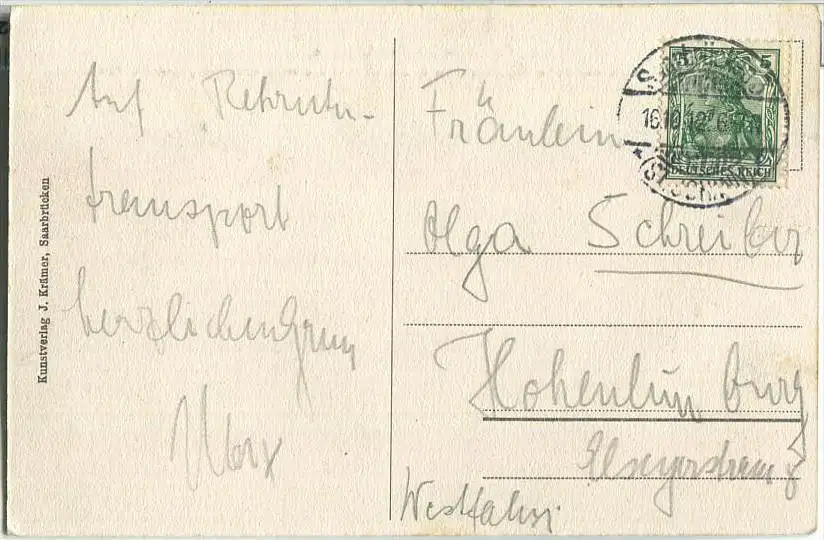 Auf Rekruten-
transport
herzlichen Gruss
Max
Kunstverlag J. Krämer, Saarbrücken
5 5
DEUTSCHES REICH
16.10.12. 6-7
Fräulein
Olga Schreiber
Hohenlimburg
Westfalen